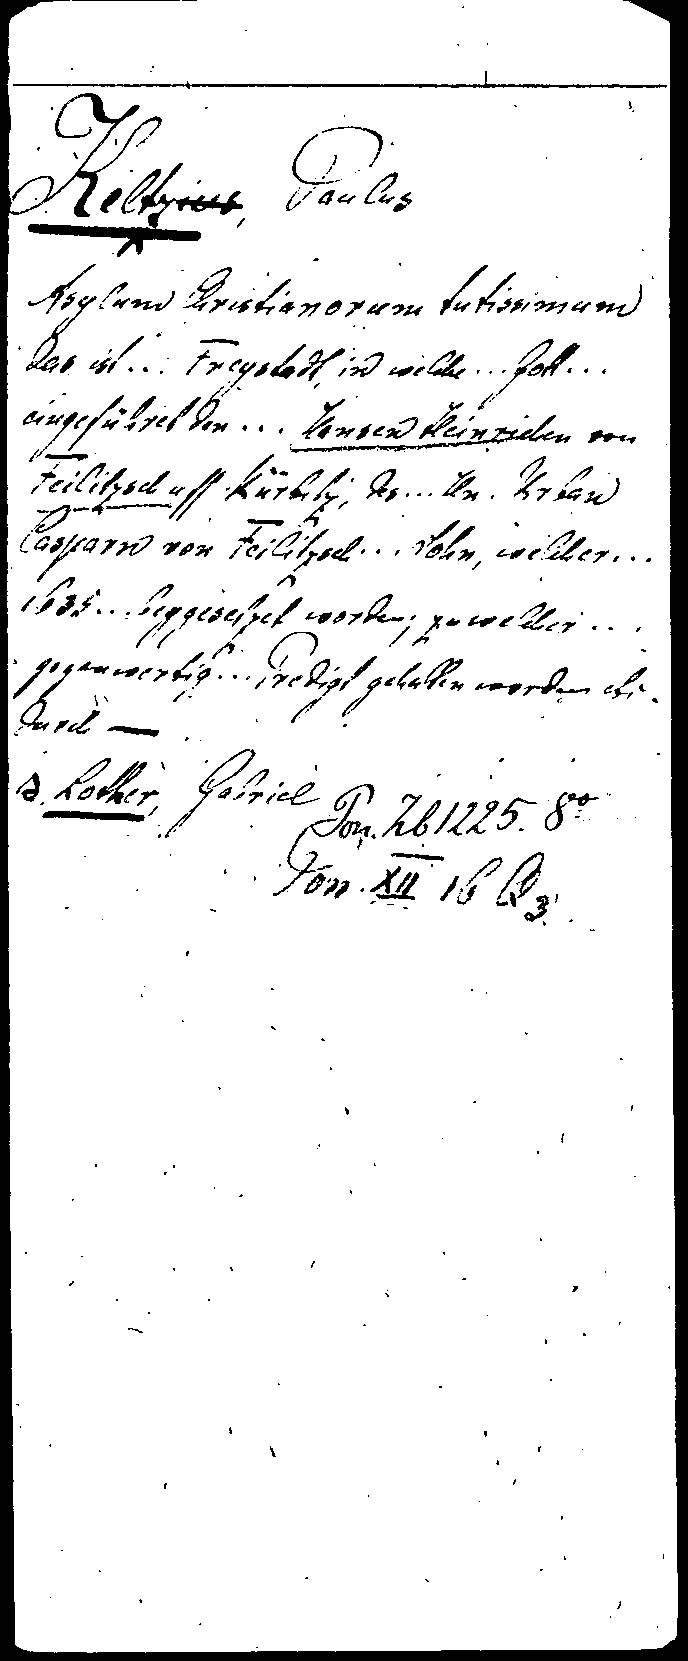 Keltzius, Paulus
Asylum Christianorum tutissimum
das ist... Freystadt, in welche... Gott...
eingeführet den... Hansen Heinrichen von
Feilitzsch uff Kürbitz, des... Hn. Urban
Casparn von Feilitzsch... Sohn, welcher...
1635... beygesetzet worden; zu welcher...
gegenwertig... Predigt gehalten worden
durch —
Lother, Gabriel
Pon. Zb 1225. 8°
Pon. XII 16 Q 3.